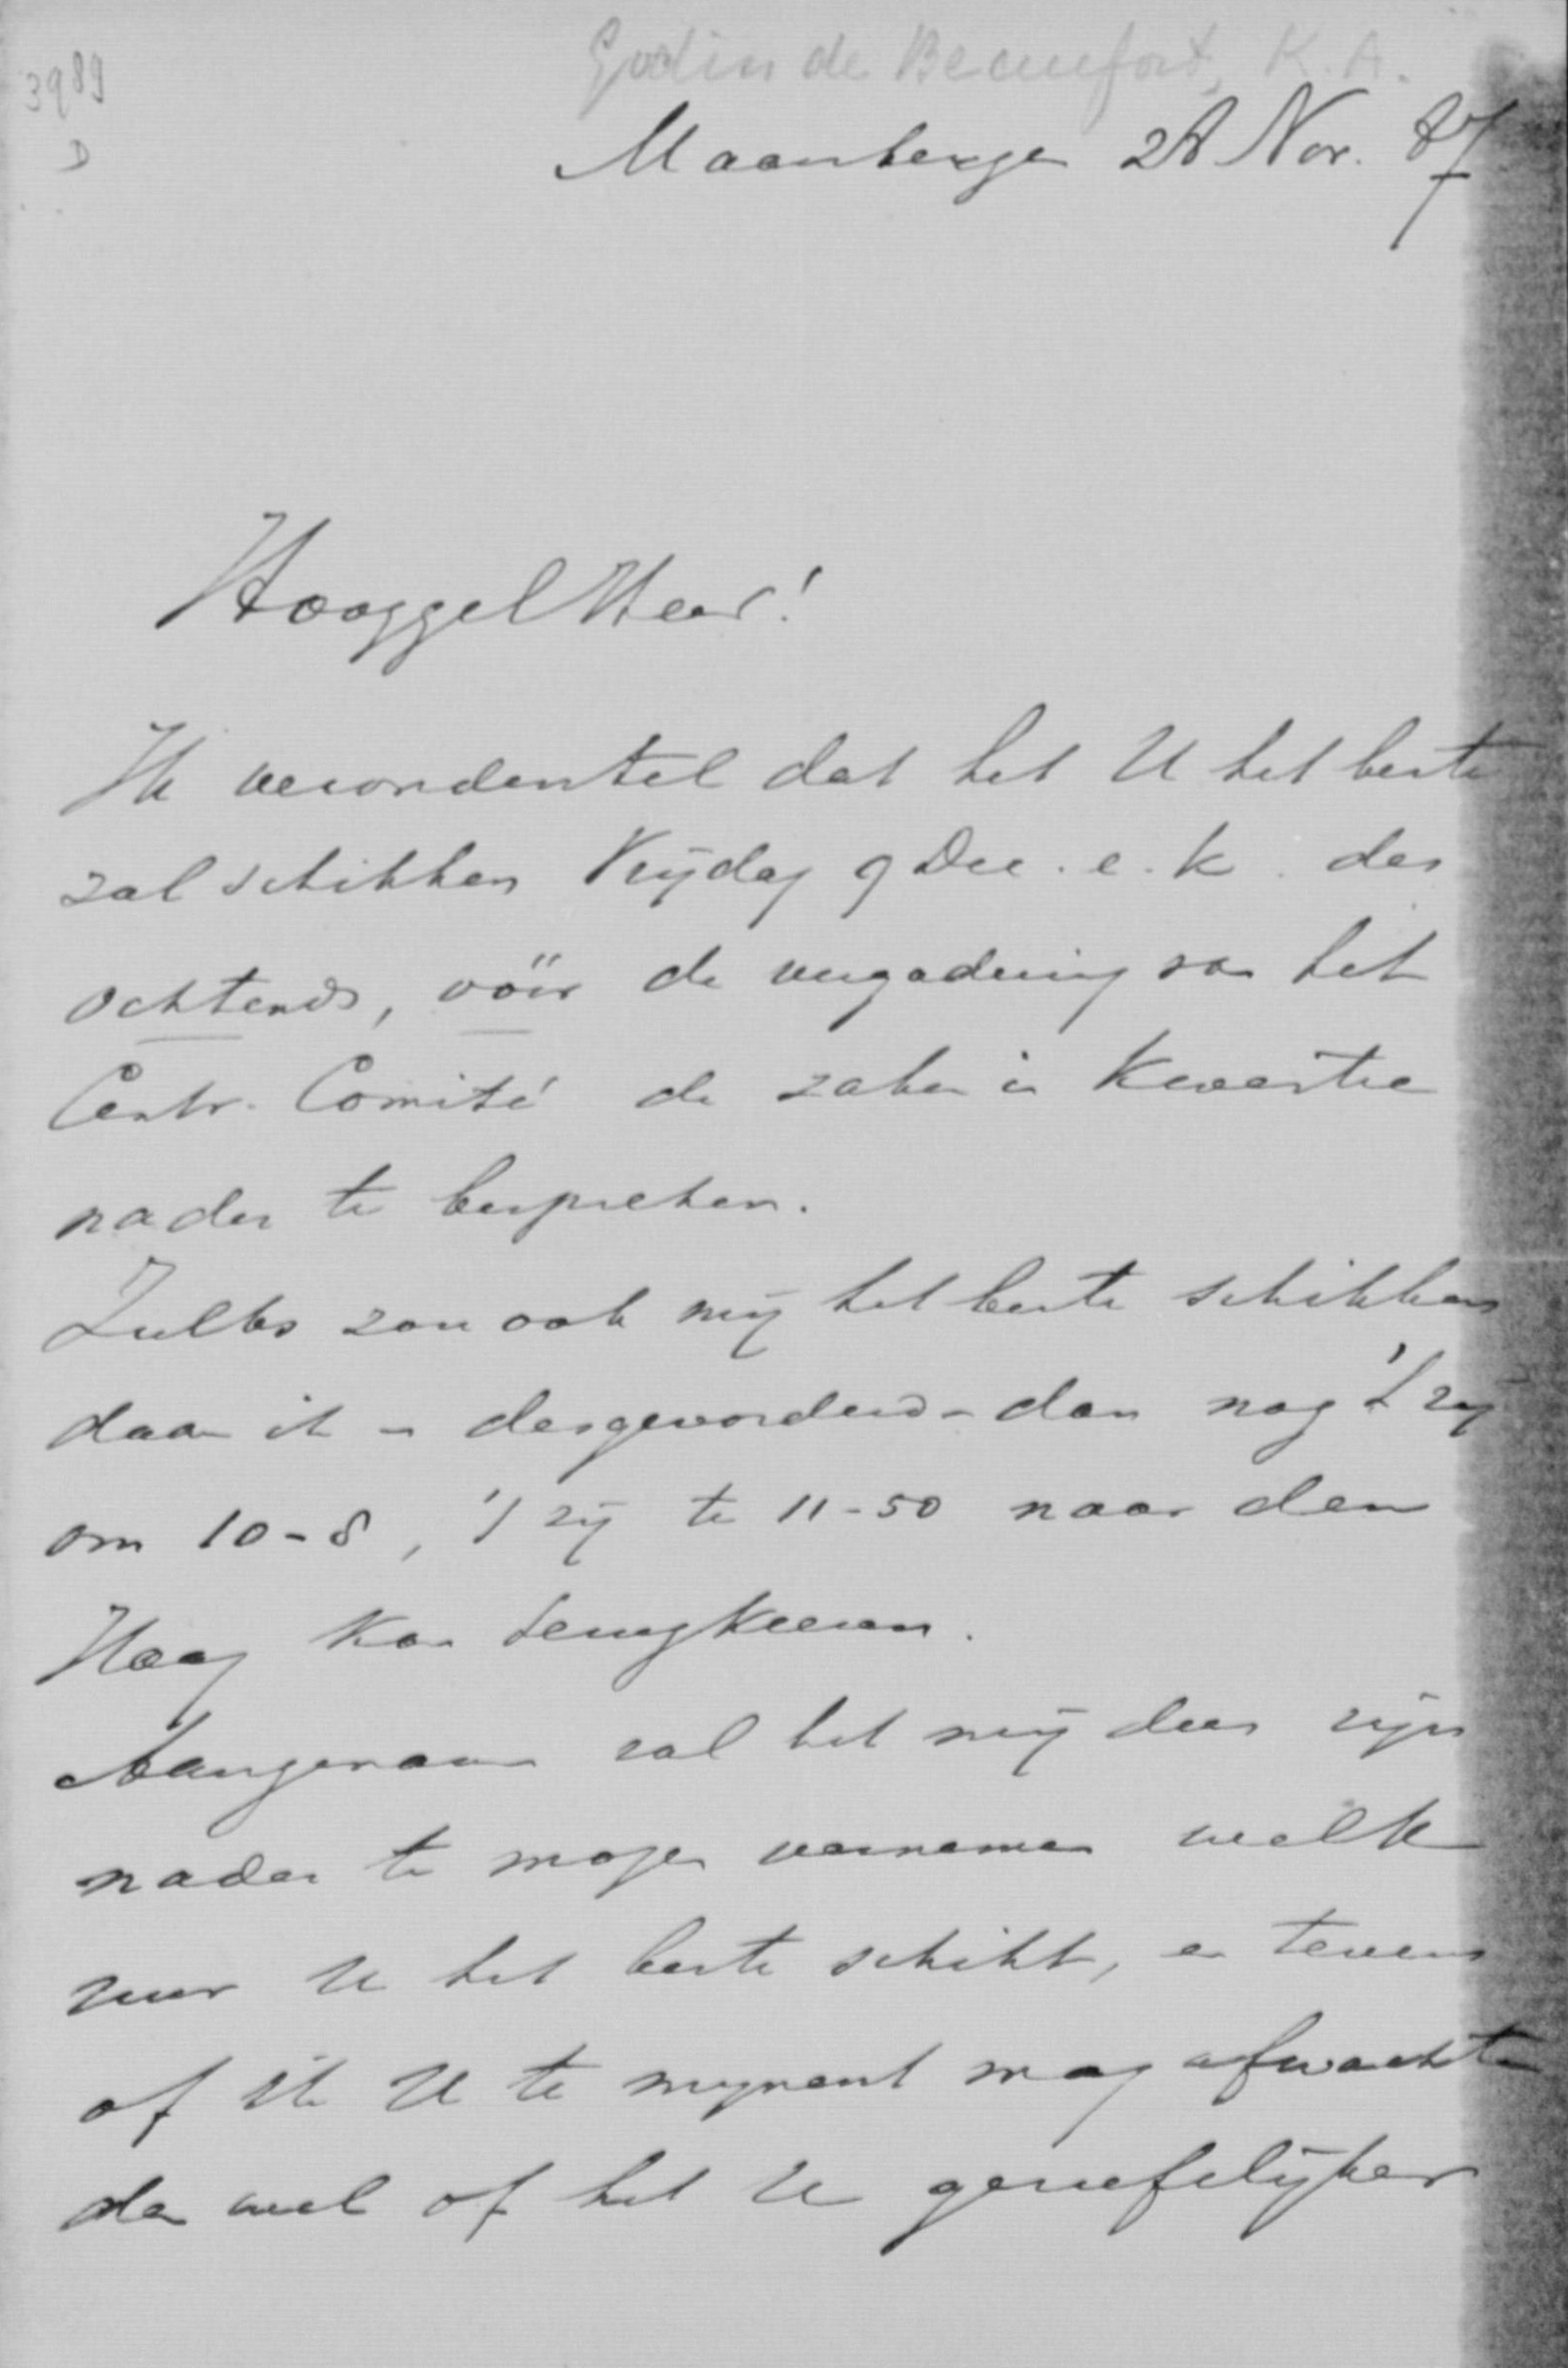 Godin de Beaufort, K. A.
3989
D
Maarnbergen 28 Nov. 87
Hooggel Heer!
Ik veronderstel dat het U het beste
zal schikken Vrijdag 9 Dec. e. k. des
ochtends, vóór de vergadering van het
Centr. Comité de zaken in kwestie
nader te bespreken.
Zulks zou ook mij het beste schikken
daar ik - desgevorderd - dan nog 't zij
om 10-8, 't zij te 11-50 naar den
Haag kan terugkeeren.
Aangenaam zal het mij dus zijn
nader te mogen vernemen welk
uur U het beste schikt, en tevens
of ik U te mijnent mag afwachten
dan wel of het U geriefelijker